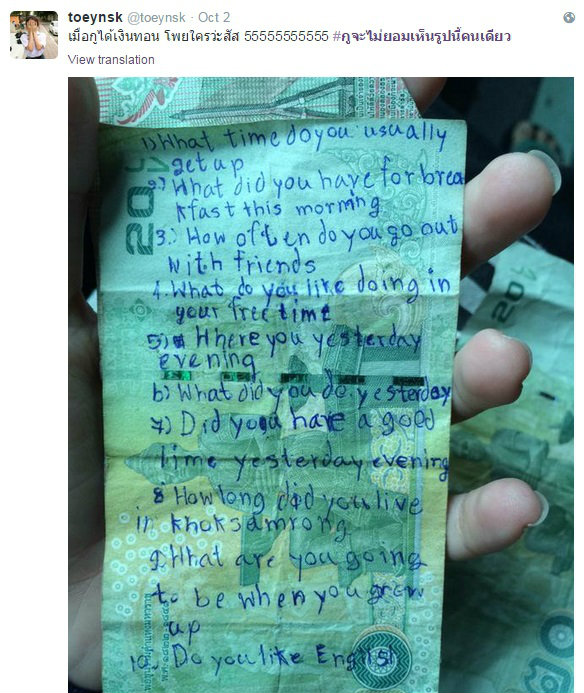 toeynsk @toeynsk · Oct 2
เมื่อกูได้เงินทอน โพยใครว่ะสัส 55555555555 #กูจะไม่ยอมเห็นรูปนี้คนเดียว
View translation
20
1) What time do you usually
get up
2) What did you have for brea
kfast this morning
3.) How often do you go out
with friends
4. What do you like doing in
your free time
5) Where you yesterday
evening
6) What did you do yesterday
7) Did you have a good
time yesterday evening
8 How long did you live
in khoksamrong
9. What are you going
to be when you grow
up
10. Do you like Englsh
20